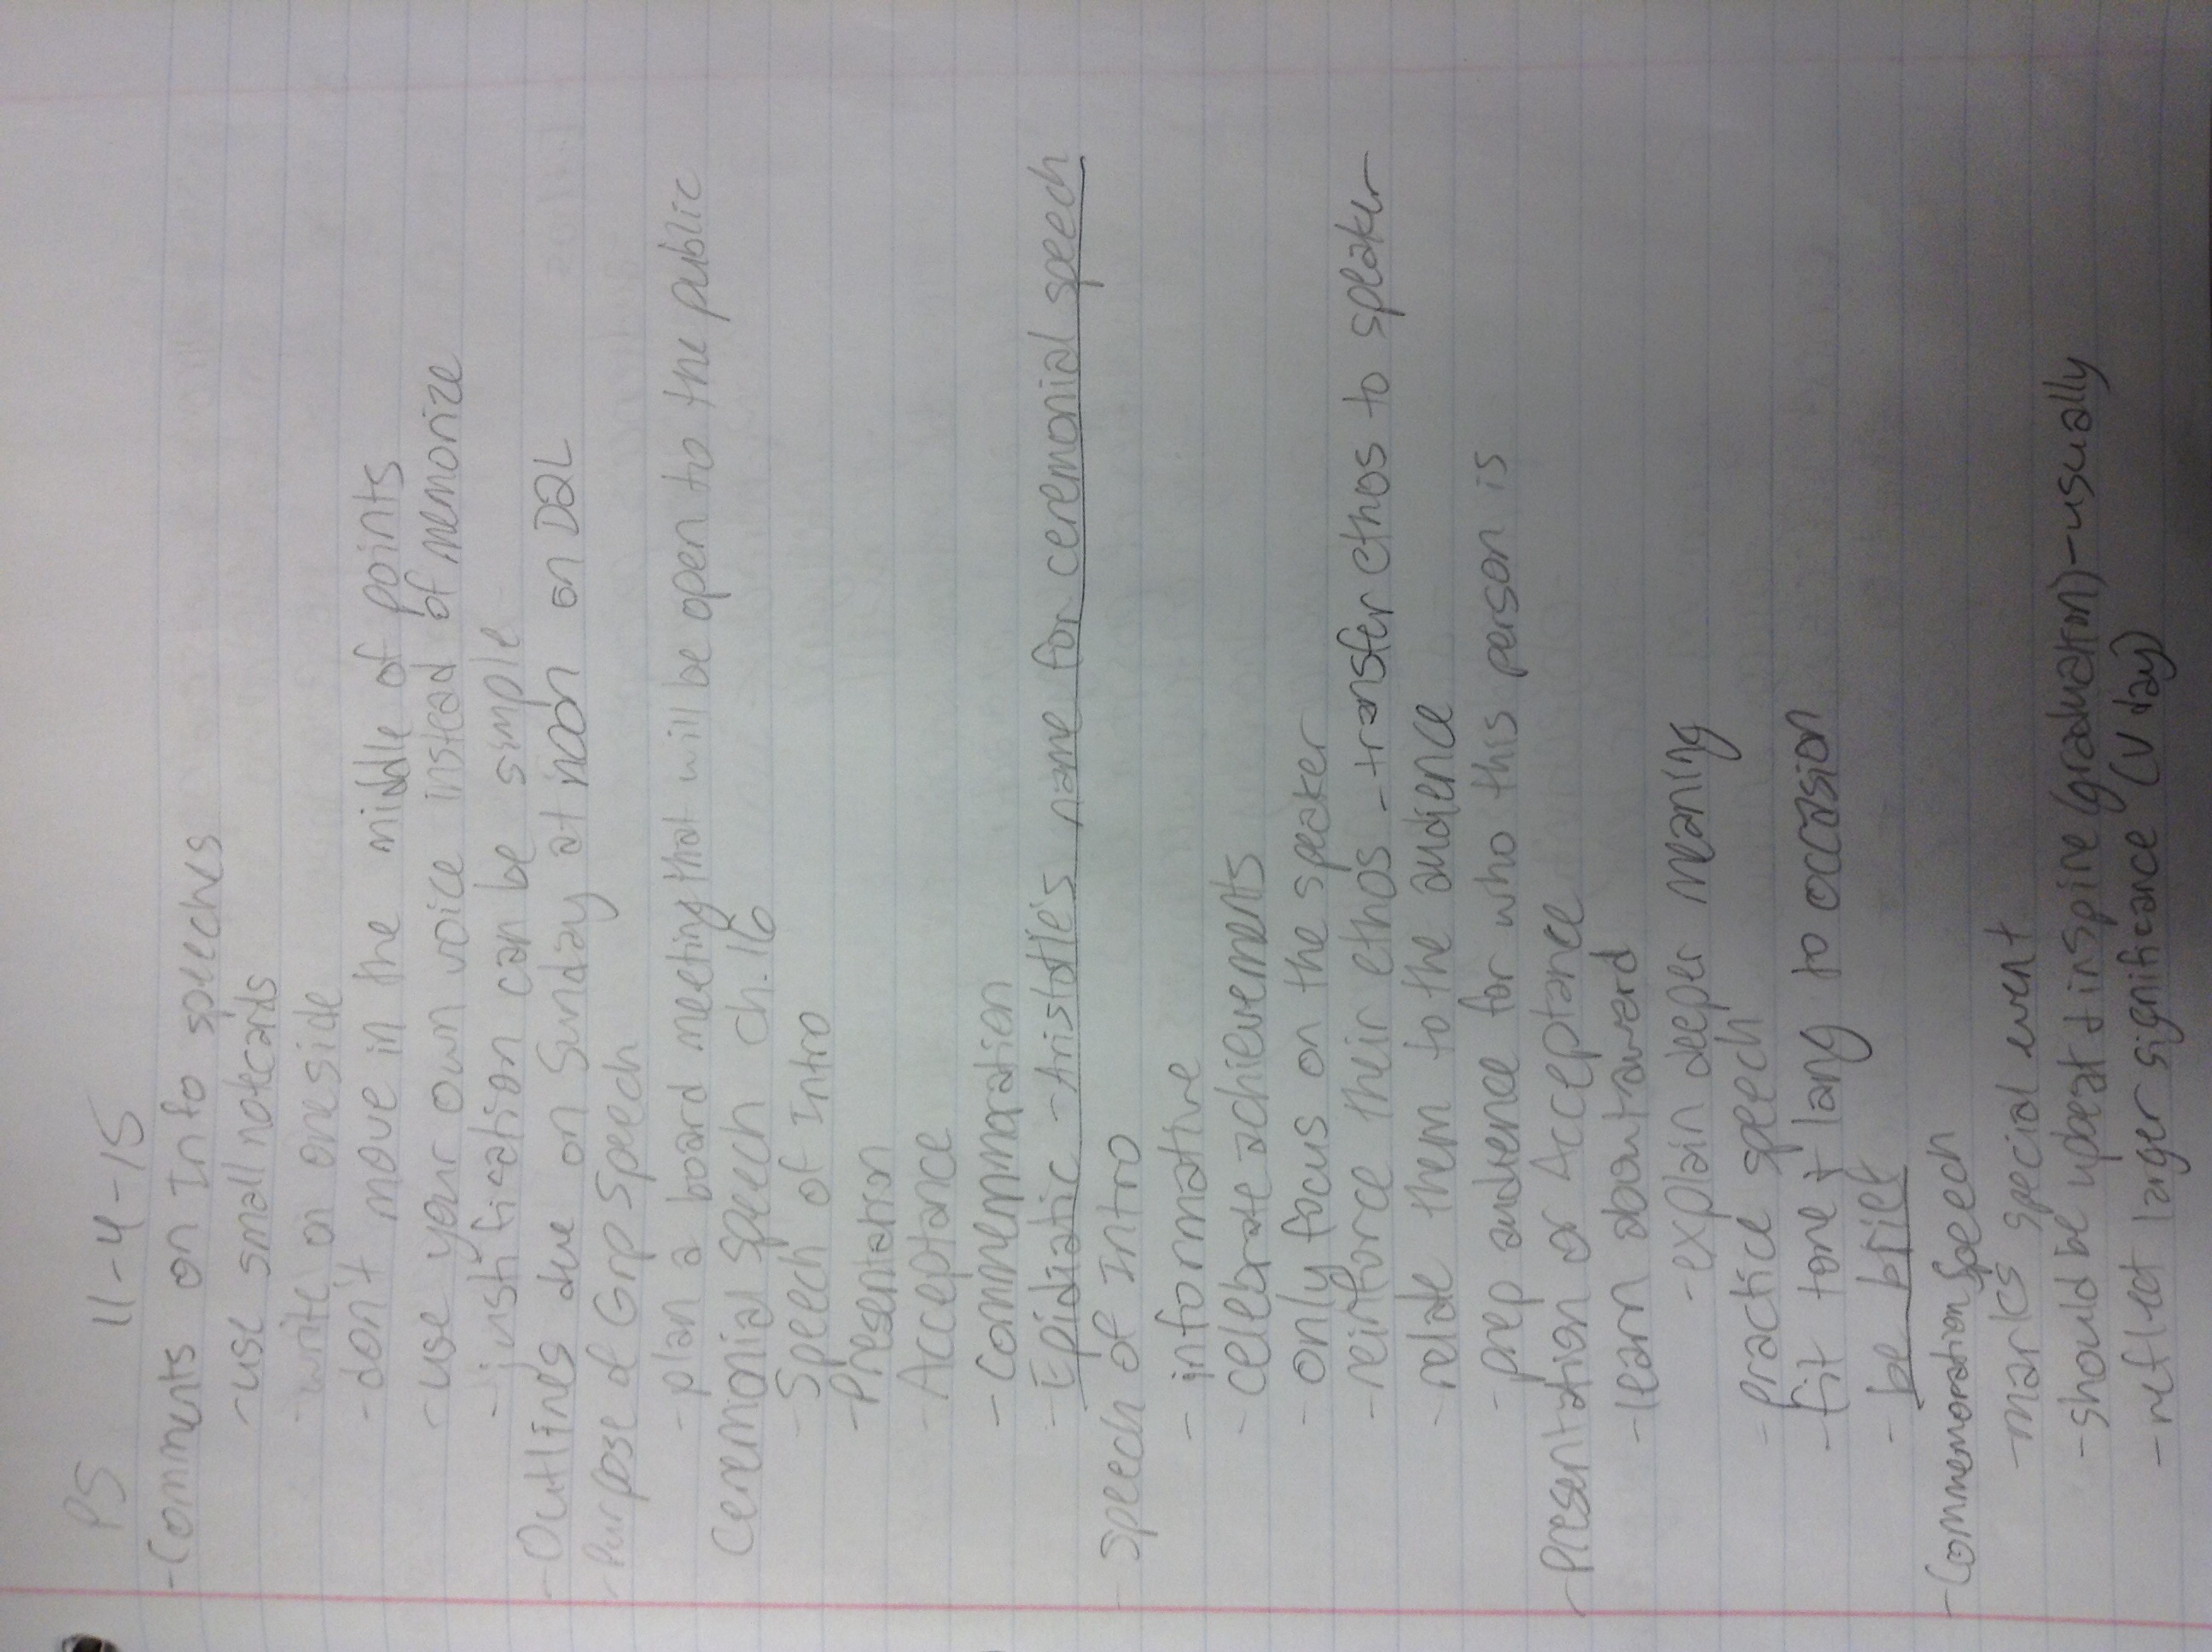 PS 11-4-15
-Comments on Info speeches
-use small notecards
-write on one side
-don't move in the middle of points
-use your own voice instead of memorize
-justification can be simple
-Outlines due on Sunday at noon on D2L
-Purpose of Grp Speech
-plan a board meeting that will be open to the public
Ceremonial Speech ch. 16
-Speech of Intro
-Presentation
-Acceptance
-Commemoration
-Epidiatic -Aristotle's name for ceremonial speech
-Speech of Intro
-informative
-celebrate achievements
-only focus on the speaker
-reinforce their ethos -transfer ethos to speaker
-relate them to the audience
-prep audience for who this person is
-Presentation or Acceptance
-learn about award
-explain deeper meaning
-practice speech
-fit tone + lang to occasion
-be brief
-Commemoration Speech
-marks special event
-should be upbeat + inspire (graduation)-usually
-reflect larger significance (V day)